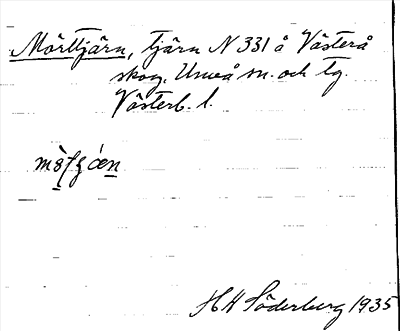 Mörttjärn, tjärn N 331 å Västerå
skog, Umeå sn. och tg.
Västerb. l.
HH Söderberg 1935